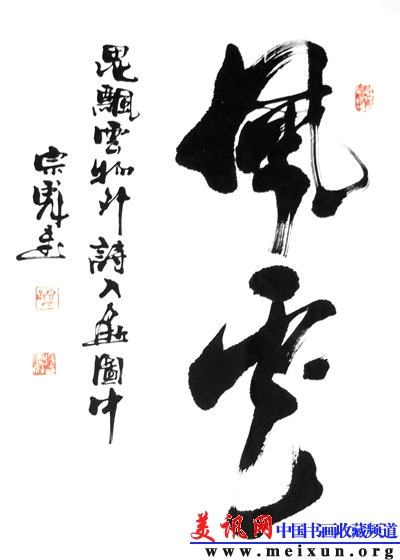 風雲
思飄雲物外詩入畫圖中
宗
美讯网 中国书画收藏频道
www.meixun.org